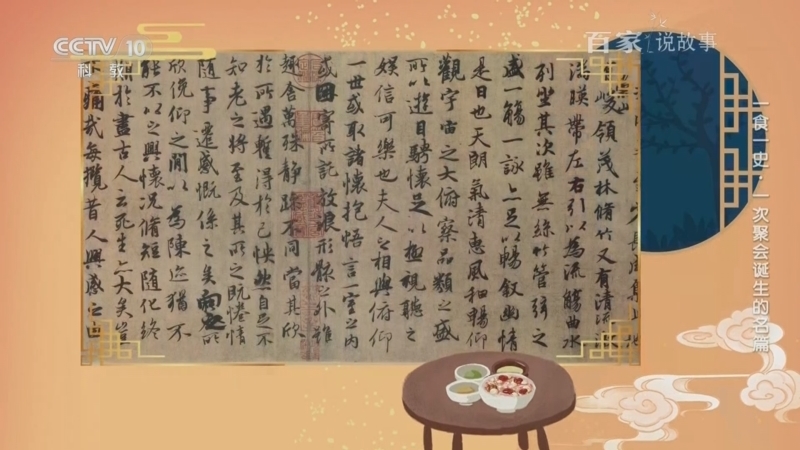 CCTV 10
科教
百家说故事
一食一史·一次聚会诞生的名篇
峻領茂林脩竹又有清流激
湍暎帶左右引以為流觴曲水
列坐其次雖無絲竹管弦之
盛一觴一詠亦足以暢敘幽情
是日也天朗氣清惠風和暢仰
觀宇宙之大俯察品類之盛
所以遊目騁懷足以極視聽之
娛信可樂也夫人之相與俯仰
一世或取諸懷抱悟言一室之內
或因寄所託放浪形骸之外雖
趣舍萬殊靜躁不同當其欣
於所遇蹔得於己怏然自足不
知老之將至及其所之既惓情
隨事遷感慨係之矣向之所
欣俛仰之間以為陳迹猶不
能不以之興懷況脩短隨化終
期於盡古人云死生亦大矣豈
不痛哉每攬昔人興感之由